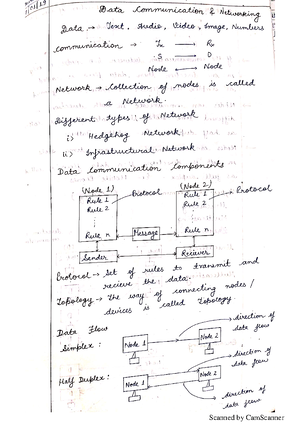 Data Communication & Networking
Data → Text, Audio, Video, Image, Numbers
Communication → Tx → Rx
S D
Node ← Node
Network → Collection of nodes is called
a Network.
Different types of Network
i) Hedgehog Network
ii) Infrastructural Network
Data Communication components
(Node 1) (Node 2)
Rule 1 Protocol Rule 1 Protocol
Rule 2 Rule 2
Rule n Message Rule n
Sender Reciever
Protocol → Set of rules to transmit and
recieve the data.
Topology → The way of connecting nodes/
devices is called Topology
Data Flow
direction of
data flow
Simplex: Node 1 Node 2
direction of
data flow
Half Duplex: Node 1 Node 2
direction of
data flow
Scanned by CamScanner